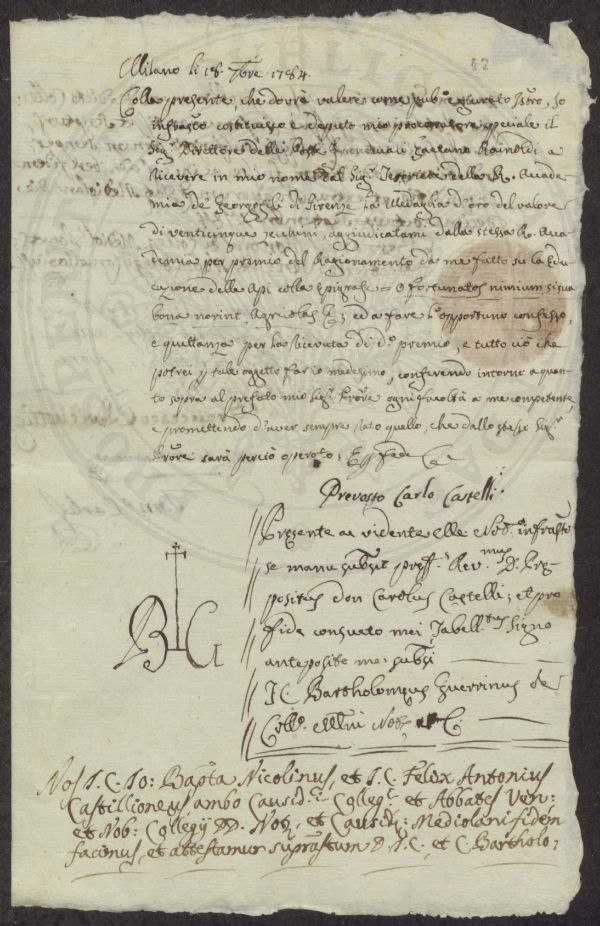 42
Milano li 18. 7bre 1784.
Colla presente, che dovrà valere come pubco giurato Istro, Io
infrascto costituisco e deputo mio procuratore speciale il
Sigr Direttore delle Poste Gaetano Rainoldi a
ricevere in mio nome dal Sigr Segretaro della R. Accade
mia de Georgofili di Firenze la Medaglia d'oro del valore
di venticinque zecchini, aggiudicatami dalla stessa R. Acca
demia per premio del Ragionamento da me fatto su la Edu
cazione delle Api colla epigrafe = O fortunatos nimium si sua
bona norint Agricolas &; ed a fare l'opportuno confesso,
e quittanza per la ricevuta di do premio, e tutto ciò che
potrei p tale oggetto far io medesimo, conferendo intorno a quan
to sopra al prefato mio Sigr Prore ogni facoltà a me competente,
e promettendo d'aver sempre rato quello, che dallo stesso Sigr
Prore sarà perciò operato; E p fede &
Prevosto Carlo Castelli.
Presente ac vidente me Noto infrascto
se manu subsct preffs Revmus D. Prę
positus Don Carolus Castelli; et pro
fide consueto mei Tabellatus signo
anteposito me subsi
BG
J C. Bartholomęus Guerrinus de
Collo Mlni Nots &C.
Nos J. C. Jo: Bapta Nicolinus, et J. C. Felix Antonius
Castillioneus ambo Causidci Collegti et Abbates Ven:
et Nob: Collegij DD. Notz et Causidz: Mediolani fidem
facimus, et attestamur suprastum D. J. C. et C. Bartholo: